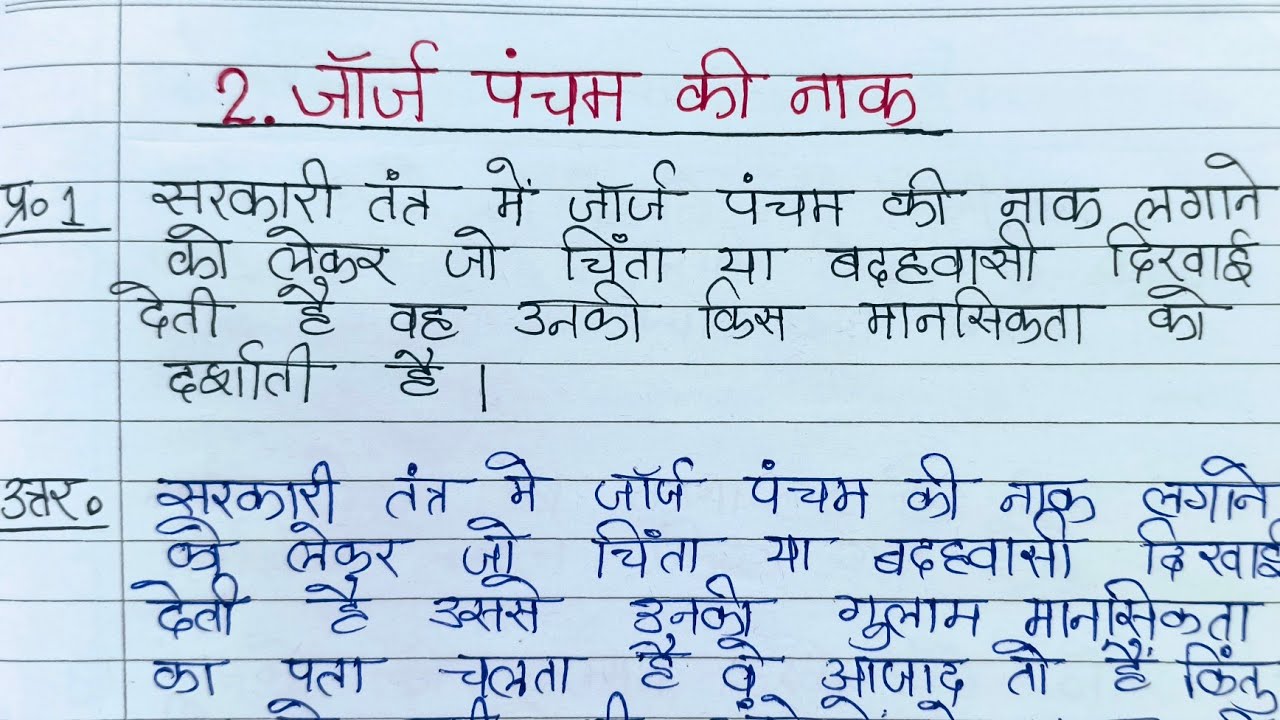 2. जॉर्ज पंचम की नाक
प्र॰1 सरकारी तंत्र में जॉर्ज पंचम की नाक लगाने
को लेकर जो चिंता या बदहवासी दिखाई
देती है वह उनकी किस मानसिकता को
दर्शाती है।
उत्तर॰ सरकारी तंत्र मे जॉर्ज पंचम की नाक लगाने
को लेकर जो चिंता या बदहवासी दिखाई
देती है उससे उनकी गुलाम मानसिकता
का पता चलता है वे आजाद तो हैं किंतु